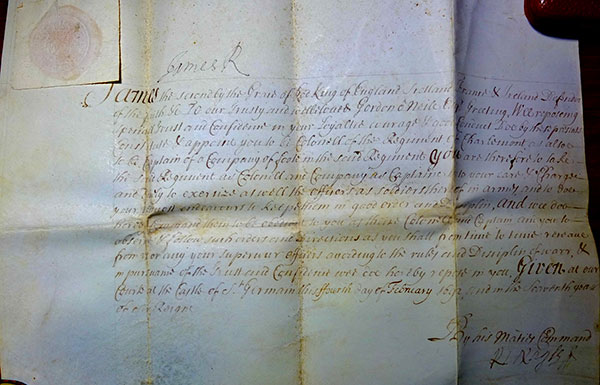 James R
James the second by the Grace of God King of England Scotland France & Ireland Defender
of the faith &c To our Trusty and welbeloved Gordon o Neile Greeting, Wee reposing
Speciall Trust and Confidence in your Loyaltie courage & good Conduct Doe by these presents
Constitute & appoint you to be Colonell of the Regiment of Charlemont, as also
to be Captain of a Company of foote in the said Regiment You are therefore to take
the said Regiment as Colonell and Company as Captaine into your care & Charge
and duly to exercise as well the officers as soldiers thereof in armes, and to doe
your best endeavours to keep them in good order and Disciplin, And wee doe
hereby command them to obey you as their Colonell and Captain and you to
observe & follow such orders and Directions as you shall from time to time receave
from us or any your superiour officers according to the rules and Disciplin of warr, &
in pursuance of the Trust and Confidence wee doe hereby repose in you, Given at our
Court at the Castle of St Germain this fourth day of February and in the year
of our Reigne
By his Maties Command